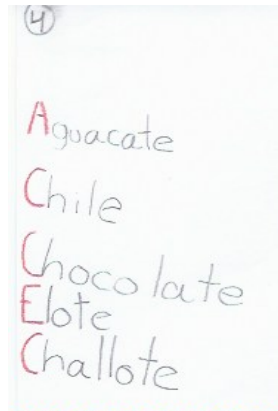 4
Aguacate
Chile
Chocolate
Elote
Challote